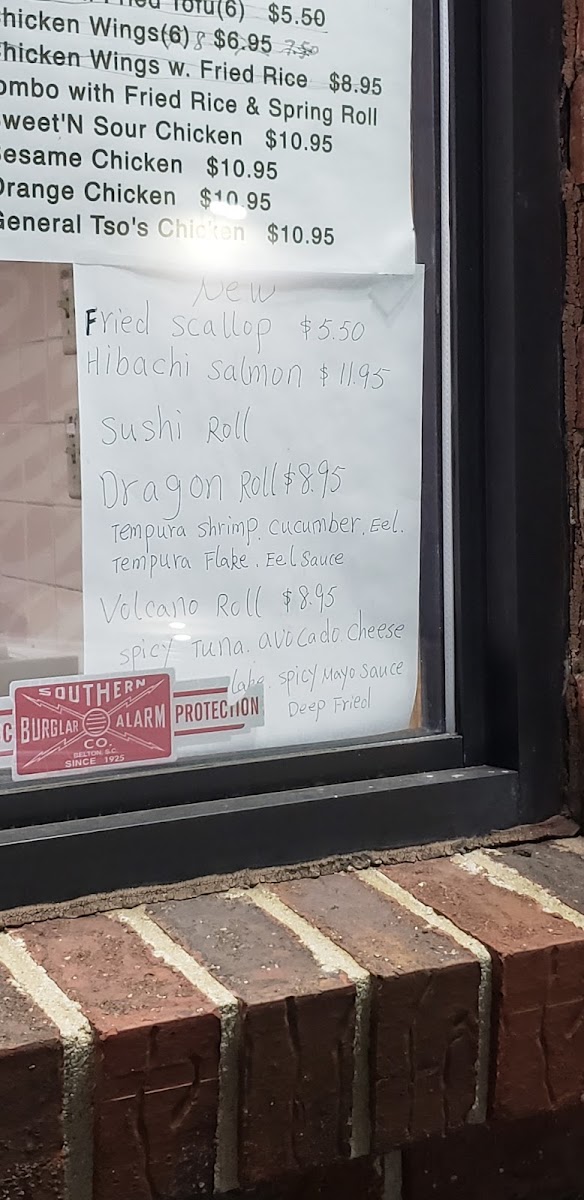 Tofu(6) $5.50
hicken Wings(6) 8 $6.95 7.50
hicken Wings w. Fried Rice $8.95
ombo with Fried Rice & Spring Roll
weet'N Sour Chicken $10.95
esame Chicken $10.95
Orange Chicken $10.95
General Tso's Chicken $10.95
New
Fried scallop $5.50
Hibachi salmon $11.95
Sushi Roll
Dragon Roll $8.95
Tempura shrimp, cucumber, Eel.
Tempura Flake. Eel Sauce
Volcano Roll $8.95
spicy Tuna. avocado cheese
lake. spicy Mayo Sauce
Deep Fried
SOUTHERN
BURGLAR ALARM
CO.
BELTON, S.C.
SINCE 1925
C PROTECTION